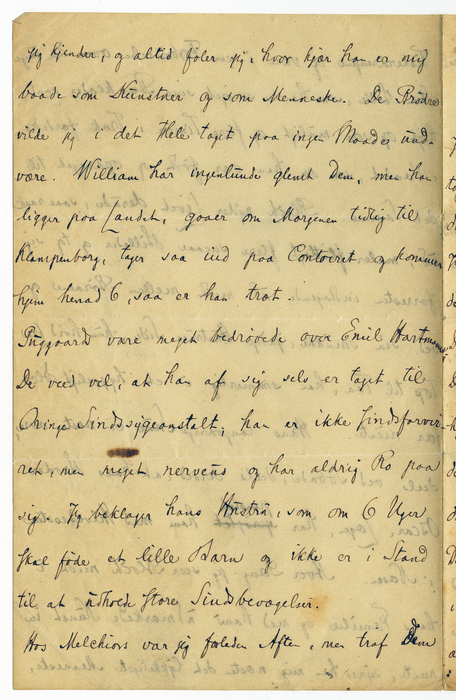 jeg kjender, og altid føler jeg, hvor kjær han er mig
baade som Kunstner og som Menneske. De Brødre
vilde jeg i det Hele taget paa ingen Maade und-
være. William har ingenlunde glemt Dem, men han
ligger paa Landet, gaaer om Morgenen tidlig til
Klampenborg, tager saa ind paa Contoiret og kommer
hjem henad 6, saa er han træt.
Puggaard vare meget bedrøvede over Emil Hartmann,
De veed vel, at han af sig selv er taget til
Oringe Sindssygeanstalt, han er ikke sindsforvir-
ret, men meget nervøs og har aldrig Ro paa
sig. Jeg beklager hans Hustru, som om 6 Uger
skal føde et lille Barn og ikke er i Stand
til at udholde store Sindsbevægelser.
Hos Melchiors var jeg forleden Aften, men traf Dem